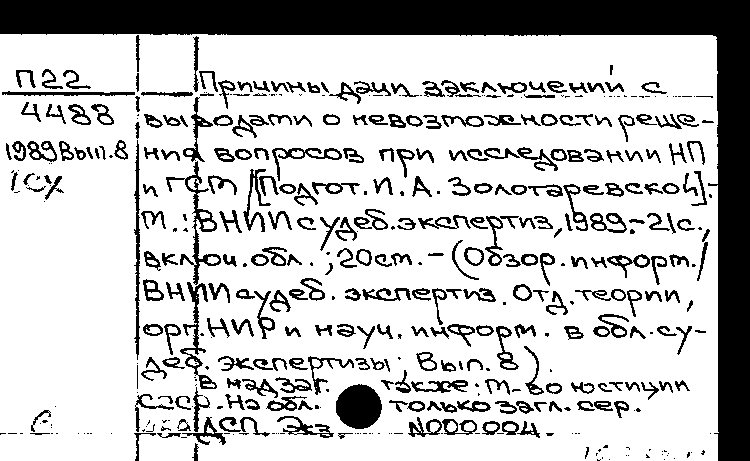 П22
4488
1989Вып.8
1CX
Причины дачи заключений с
выводами о невозможности реше-
ния вопросов при исследовании НП
и ГСМ /[Подгот. И. А. Золотаревской].-
М.: ВНИИ судеб. экспертиз, 1989.-21с.,
включ. обл. ; 20см. - (Обзор. информ./
ВНИИ судеб. экспертиз. Отд. теории,
орг. НИР и науч. информ. в обл. су-
деб. экспертизы; Вып. 8).
В надзаг. также: М-во юстиции
СССР. На обл. только загл. сер.
ДСП. Экз. N000004.